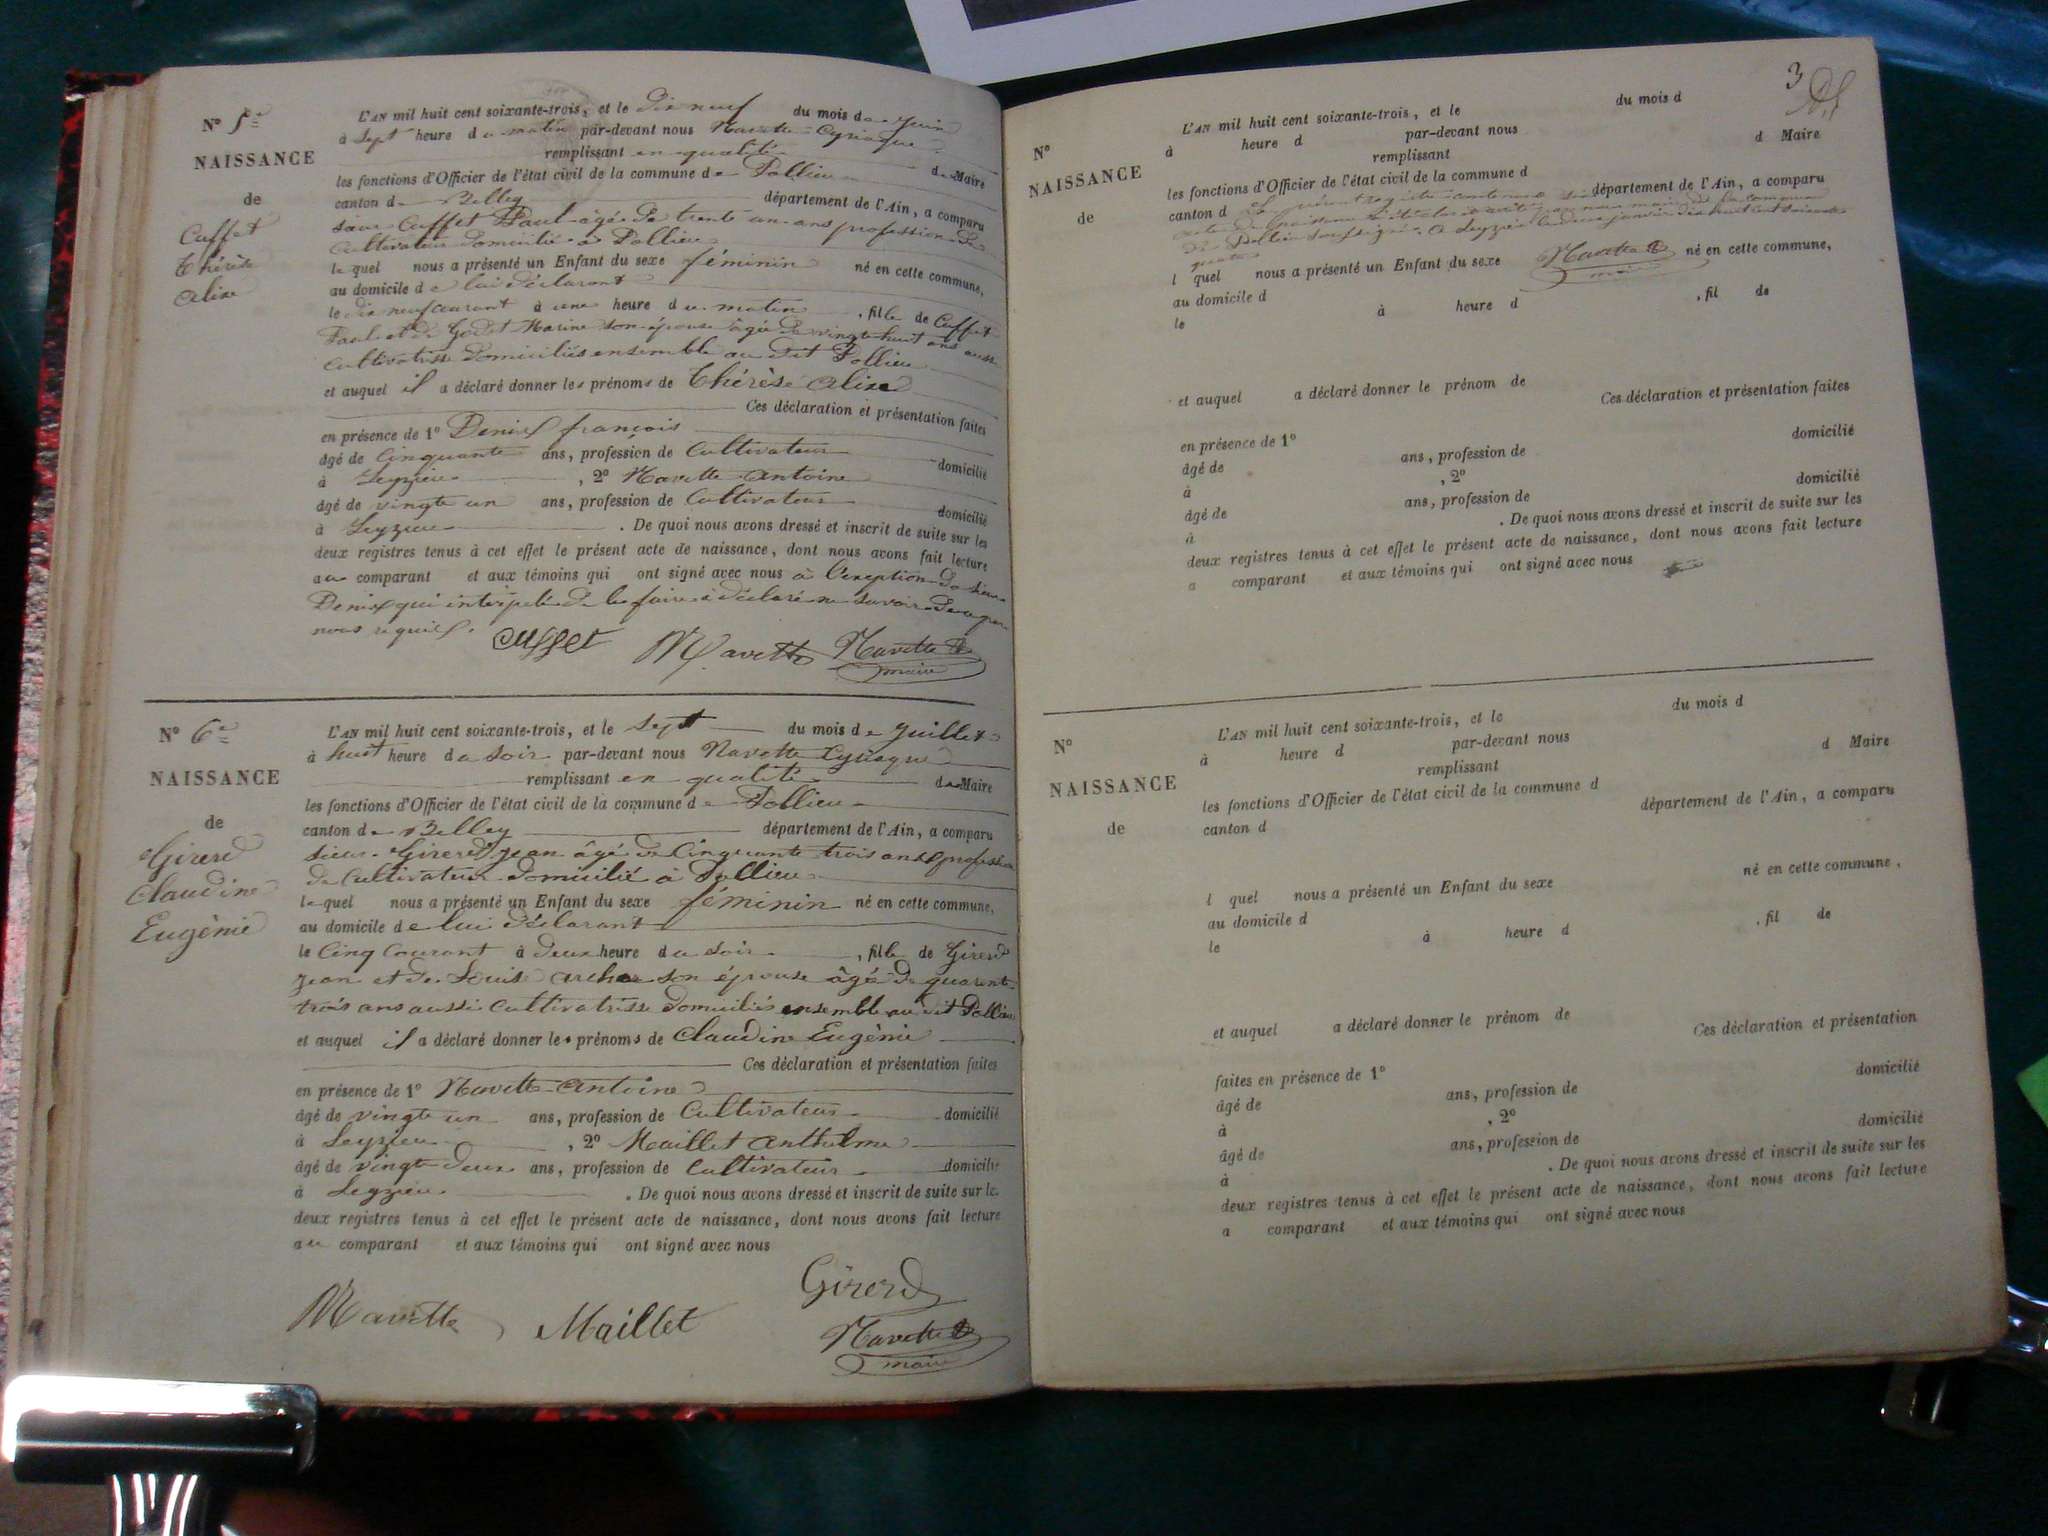 N° 5e
NAISSANCE
de
Cuffet
Thérèse
Alix
L'AN mil huit cent soixante-trois, et le dix neuf du mois de Juin
à Sept heure du matin par-devant nous Navette Cyriaque
remplissant en qualité de Maire
les fonctions d'Officier de l'état civil de la commune de Pollieu
canton de Belley département de l'Ain, a comparu
sieur Cuffet Paul âgé de trente un ans profession de
Cultivateur domicilié à Pollieu
lequel nous a présenté un Enfant du sexe féminin né en cette commune,
au domicile de lui déclarant
le dix neuf courant à une heure du matin, fille de Cuffet
Paul et de Godet Marine son épouse âgée de vingt huit ans aussi
Cultivatrisse domiciliés ensemble au dit Pollieu
et auquel il a déclaré donner les prénoms de Thérèse Alix
Ces déclaration et présentation faites
en présence de 1° Denis françois
âgé de Cinquante ans, profession de Cultivateur domicilié
à Leyzieu, 2° Navette Antoine
âgé de vingte un ans, profession de Cultivateur domicilié
à Leyzieu. De quoi nous avons dressé et inscrit de suite sur les
deux registres tenus à cet effet le présent acte de naissance, dont nous avons fait lecture
au comparant et aux témoins qui ont signé avec nous à l'exception du sieur
Denis qui interpelé de le faire a déclaré ne savoir de ce par
nous requis.
Cuffet Navette Navette C
maire
N° 6e
NAISSANCE
de
Girerd
Claudine
Eugènie
L'AN mil huit cent soixante-trois, et le sept du mois de Juillet
à huit heure du soir par-devant nous Navette Cyriaque
remplissant en qualité de Maire
les fonctions d'Officier de l'état civil de la commune de Pollieu
canton de Belley département de l'Ain, a comparu
sieur Girerd Jean âgé de Cinquante trois ans profession
de Cultivateur domicilié à Pollieu
lequel nous a présenté un Enfant du sexe féminin né en cette commune,
au domicile de lui déclarant
le Cinq Courant à deux heure du soir, fille de Girerd
Jean et de son épouse âgé de quarente
trois ans aussi Cultivatrisse domiciliés ensemble au dit Pollieu
et auquel il a déclaré donner les prénoms de Claudine Eugènie
Ces déclaration et présentation faites
en présence de 1° Navette Antoine
âgé de vingte un ans, profession de Cultivateur domicilié
à Leyzieu, 2° Maillet Anthelme
âgé de vingt deux ans, profession de Cultivateur domicilié
à Leyzieu. De quoi nous avons dressé et inscrit de suite sur le.
deux registres tenus à cet effet le présent acte de naissance, dont nous avons fait lecture
au comparant et aux témoins qui ont signé avec nous
Girerd
Navette Maillet Navette C
maire
3
N°
NAISSANCE
de
L'AN mil huit cent soixante-trois, et le du mois d
à heure d par-devant nous
remplissant d Maire
les fonctions d'Officier de l'état civil de la commune d
canton d département de l'Ain, a comparu
Le présent registre contenant six
actes de naissance a été clos et arrêté par nous maire de la commune
de Pollieu soussigné. A Leyzieu le deux janvier dix huit cent soixante
quatre
Navette C
maire
l quel nous a présenté un Enfant du sexe né en cette commune,
au domicile d
le à heure d , fil de
et auquel a déclaré donner le prénom de
Ces déclaration et présentation faites
en présence de 1°
âgé de ans, profession de domicilié
à , 2°
âgé de ans, profession de domicilié
à . De quoi nous avons dressé et inscrit de suite sur les
deux registres tenus à cet effet le présent acte de naissance, dont nous avons fait lecture
a comparant et aux témoins qui ont signé avec nous
N°
NAISSANCE
de
L'AN mil huit cent soixante-trois, et le du mois d
à heure d par-devant nous
remplissant d Maire
les fonctions d'Officier de l'état civil de la commune d
canton d département de l'Ain, a comparu
l quel nous a présenté un Enfant du sexe né en cette commune,
au domicile d
le à heure d , fil de
et auquel a déclaré donner le prénom de
Ces déclaration et présentation
faites en présence de 1°
âgé de ans, profession de domicilié
à , 2°
âgé de ans, profession de domicilié
à . De quoi nous avons dressé et inscrit de suite sur les
deux registres tenus à cet effet le présent acte de naissance, dont nous avons fait lecture
a comparant et aux témoins qui ont signé avec nous